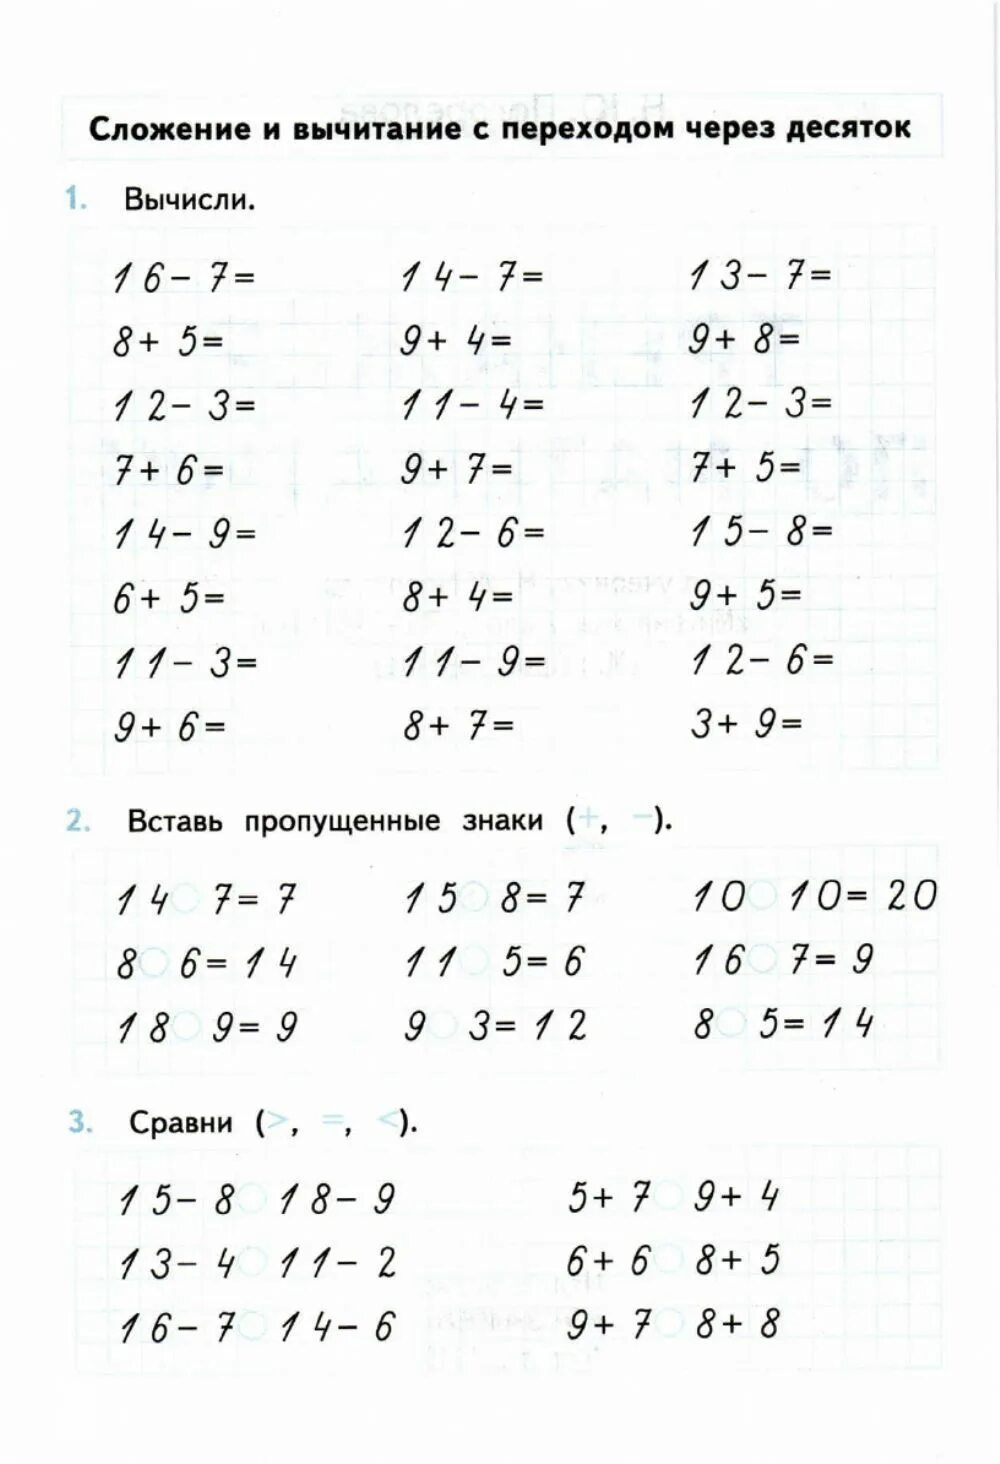 Сложение и вычитание с переходом через десяток
1. Вычисли.
16-7= 14-7= 13-7=
8+5= 9+4= 9+8=
12-3= 11-4= 12-3=
7+6= 9+7= 7+5=
14-9= 12-6= 15-8=
6+5= 8+4= 9+5=
11-3= 11-9= 12-6=
9+6= 8+7= 3+9=
2. Вставь пропущенные знаки (+, −).
14○7=7 15○8=7 10○10=20
8○6=14 11○5=6 16○7=9
18○9=9 9○3=12 8○5=14
3. Сравни (>, =, <).
15-8○18-9 5+7○9+4
13-4○11-2 6+6○8+5
16-7○14-6 9+7○8+8